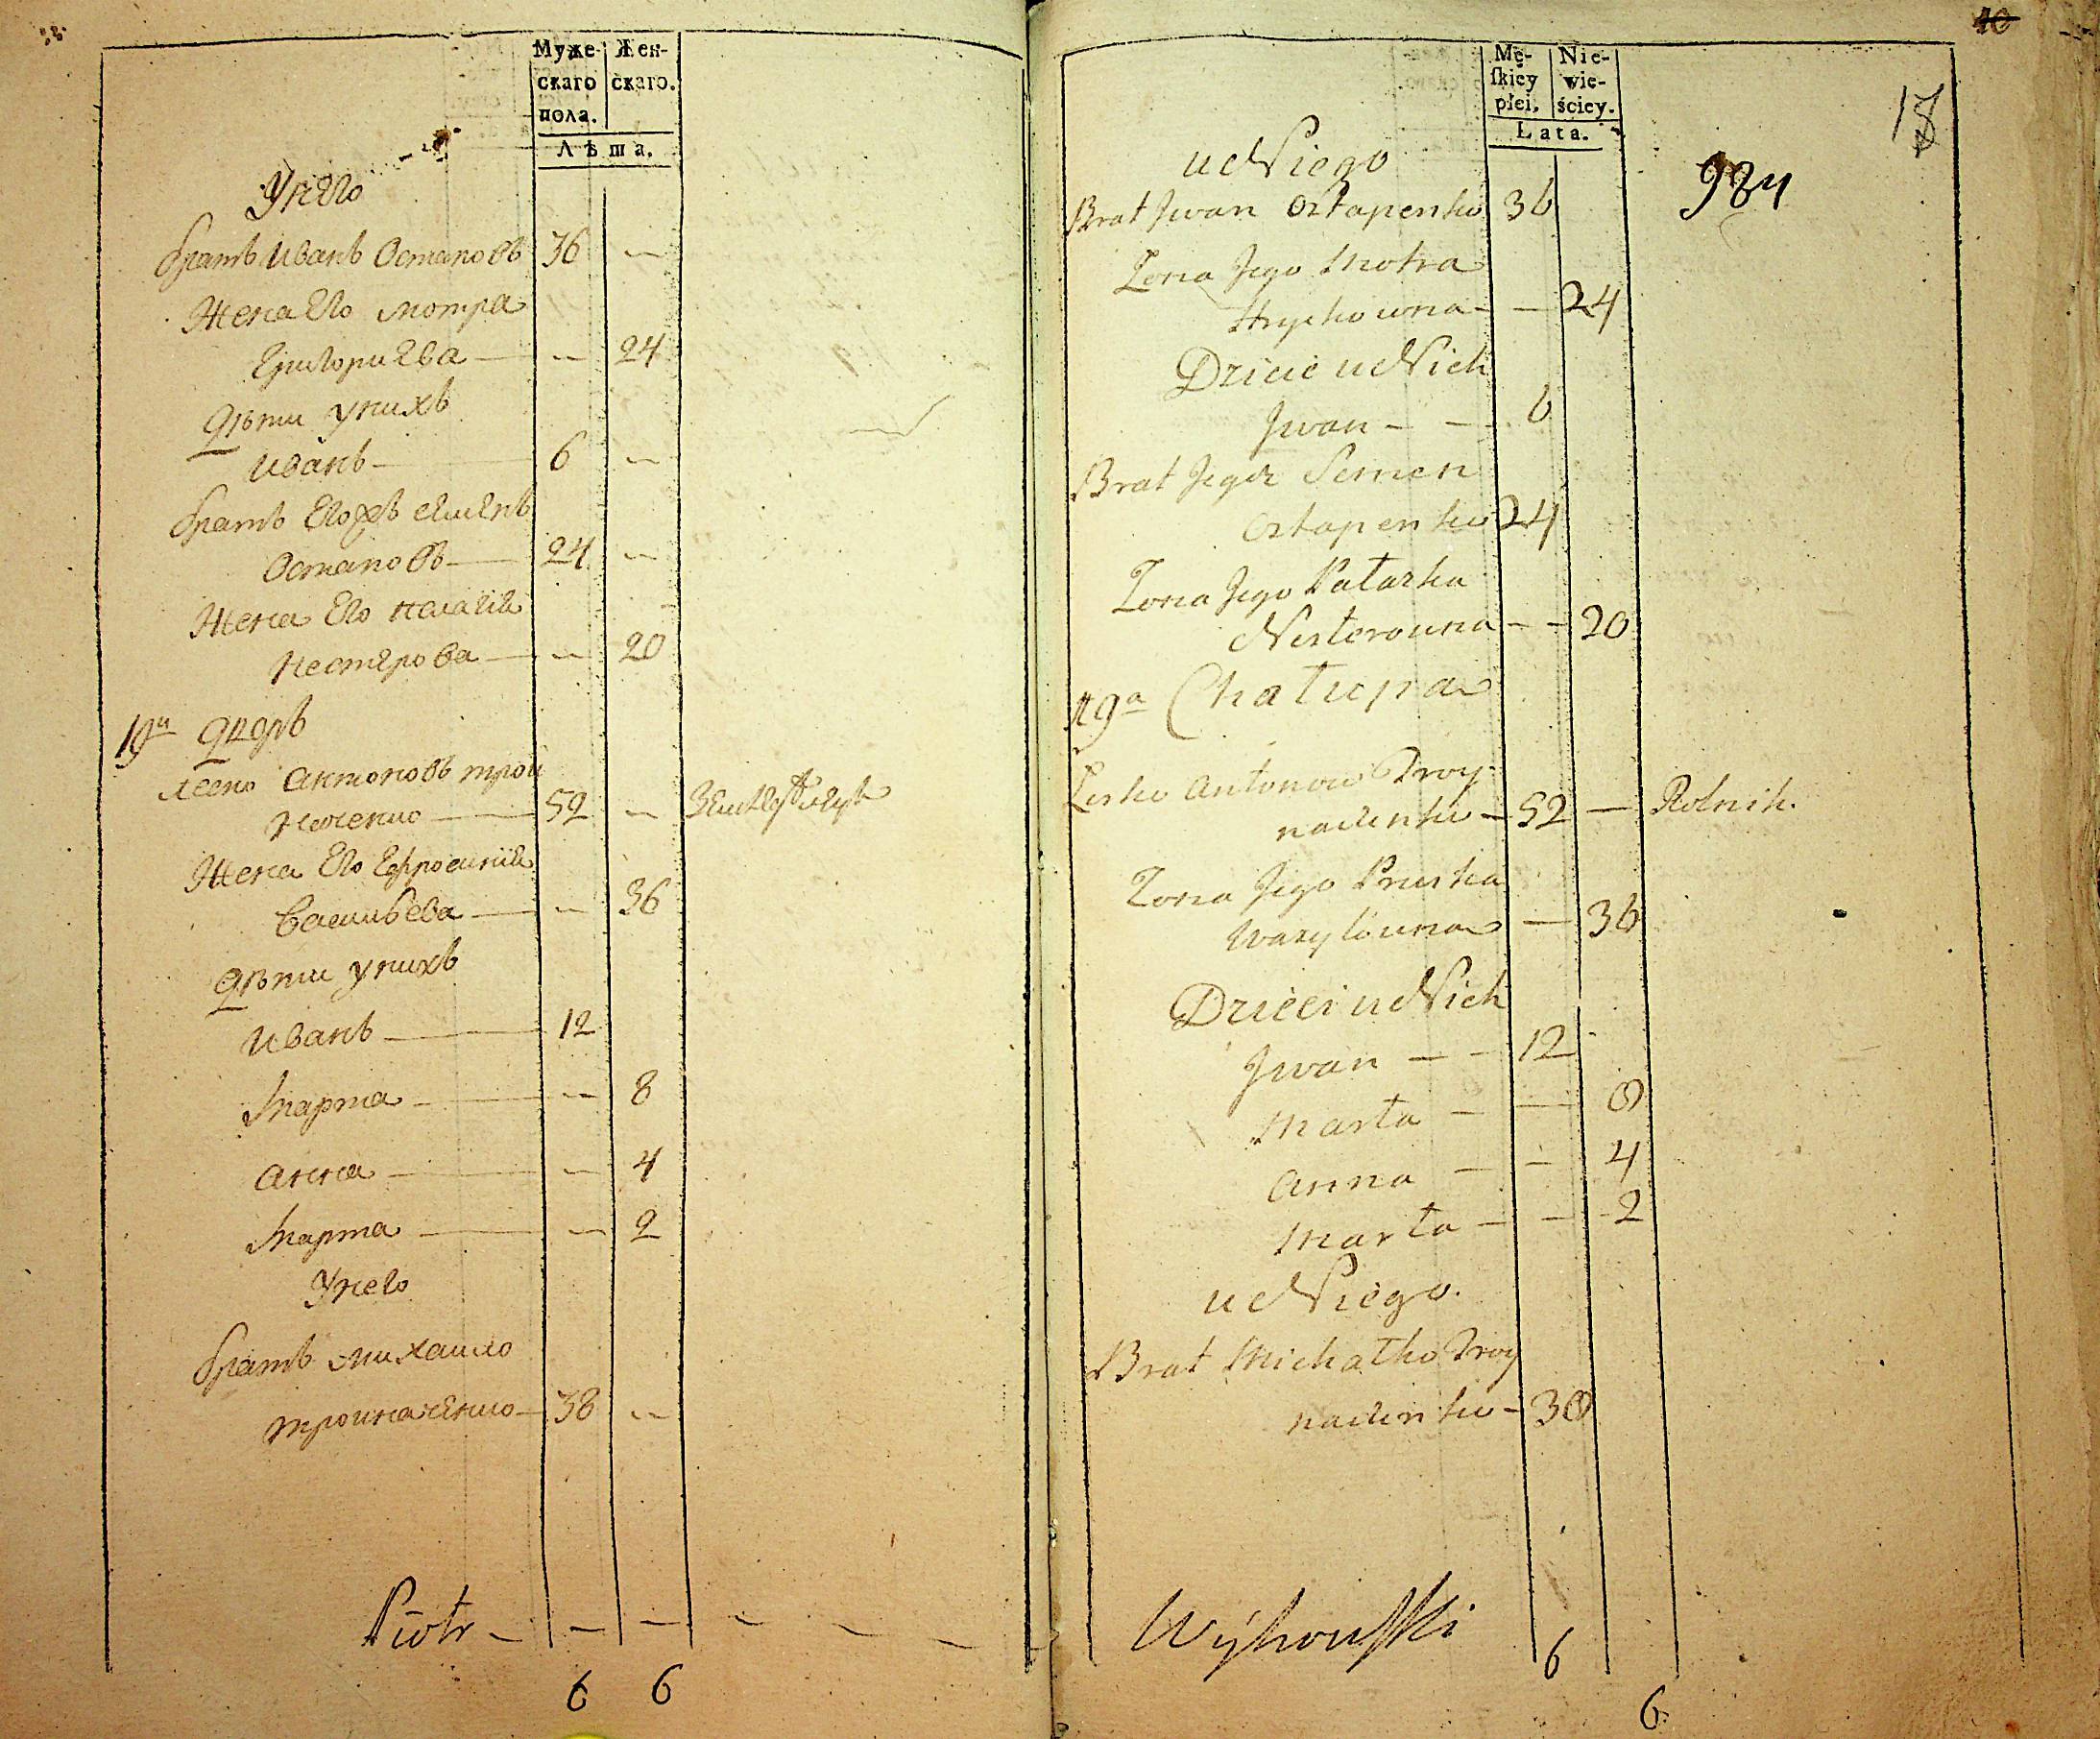 Муже- Жен-
скаго скаго.
пола.
Лѣта.
Унего
братъ Иванъ Остаповъ 36 —
Жена Его Мотра
Григориева — — 24
Дѣти унихъ
Иванъ — 6 —
братъ Егожъ Семенъ
Остаповъ — 24 —
Жена Его Палагия
Нестерова — — 20
19й Дворъ
Леско Антоновъ Трой
наченко — 52 —
Жена Его Ефросиния
Васильева — — 36
Дѣти унихъ
Иванъ — 12
Марта — — 8
Анна — — 4
Марта — — 2
Унего
братъ Михайло
Тройначенко — 38 —
Piotr — — — — — —
6 6
10
Mę- Nie-
ſkiey wie-
płei. ściey.
Lata.
18
984
u Niego
Brat Jwan Ostapenko 36
Zona Jego Motra
Hryckowna — — 24
Dzieci u Nich
Jwan — — 6
Brat Jegoż Semen
Ostapenko 24
Zona Jego Pałaszka
Nesterowna — — 20
19a Chałupa
Lesko Antonow Troy
naczenko — 52 — Rolnik.
Zona Jego Pruska
Wasylowna — 36
Dzieci u Nich
Jwan — — 12
Marta — — 8
Anna — — 4
Marta — — 2
u Niego.
Brat Michałko Troy
naczenko — 38
Wyhowſki
6
6